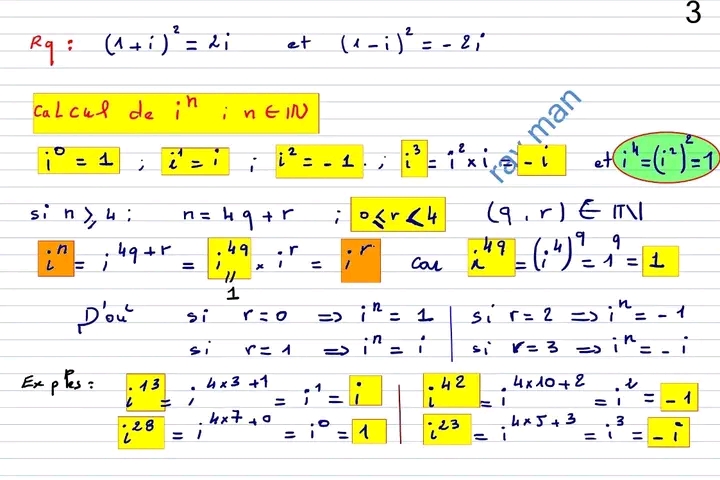 3
Rq : (1+i)² = 2i et (1-i)² = -2i
Calcul de iⁿ ; n ∈ ℕ
i⁰ = 1 ; i¹ = i ; i² = -1 ; i³ = i² × i = -i et i⁴ = (i²)² = 1
ray man
si n ⩾ 4 ; n = 4q + r ; 0 ⩽ r < 4 (q, r) ∈ ℕ
iⁿ = i^{4q+r} = i^{4q} × i^r = i^r car i^{4q} = (i⁴)^q = 1^q = 1
"
1
D'où si r = 0 ⟹ iⁿ = 1 | si r = 2 ⟹ iⁿ = -1
si r = 1 ⟹ iⁿ = i | si r = 3 ⟹ iⁿ = -i
Exples : i¹³ = i^{4×3+1} = i¹ = i | i⁴² = i^{4×10+2} = i² = -1
i²⁸ = i^{4×7+0} = i⁰ = 1 | i²³ = i^{4×5+3} = i³ = -i